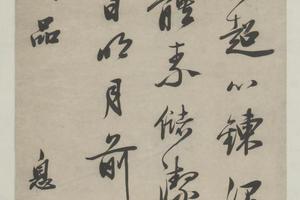 超心鍊冶
體素儲潔
日明月前
品 息